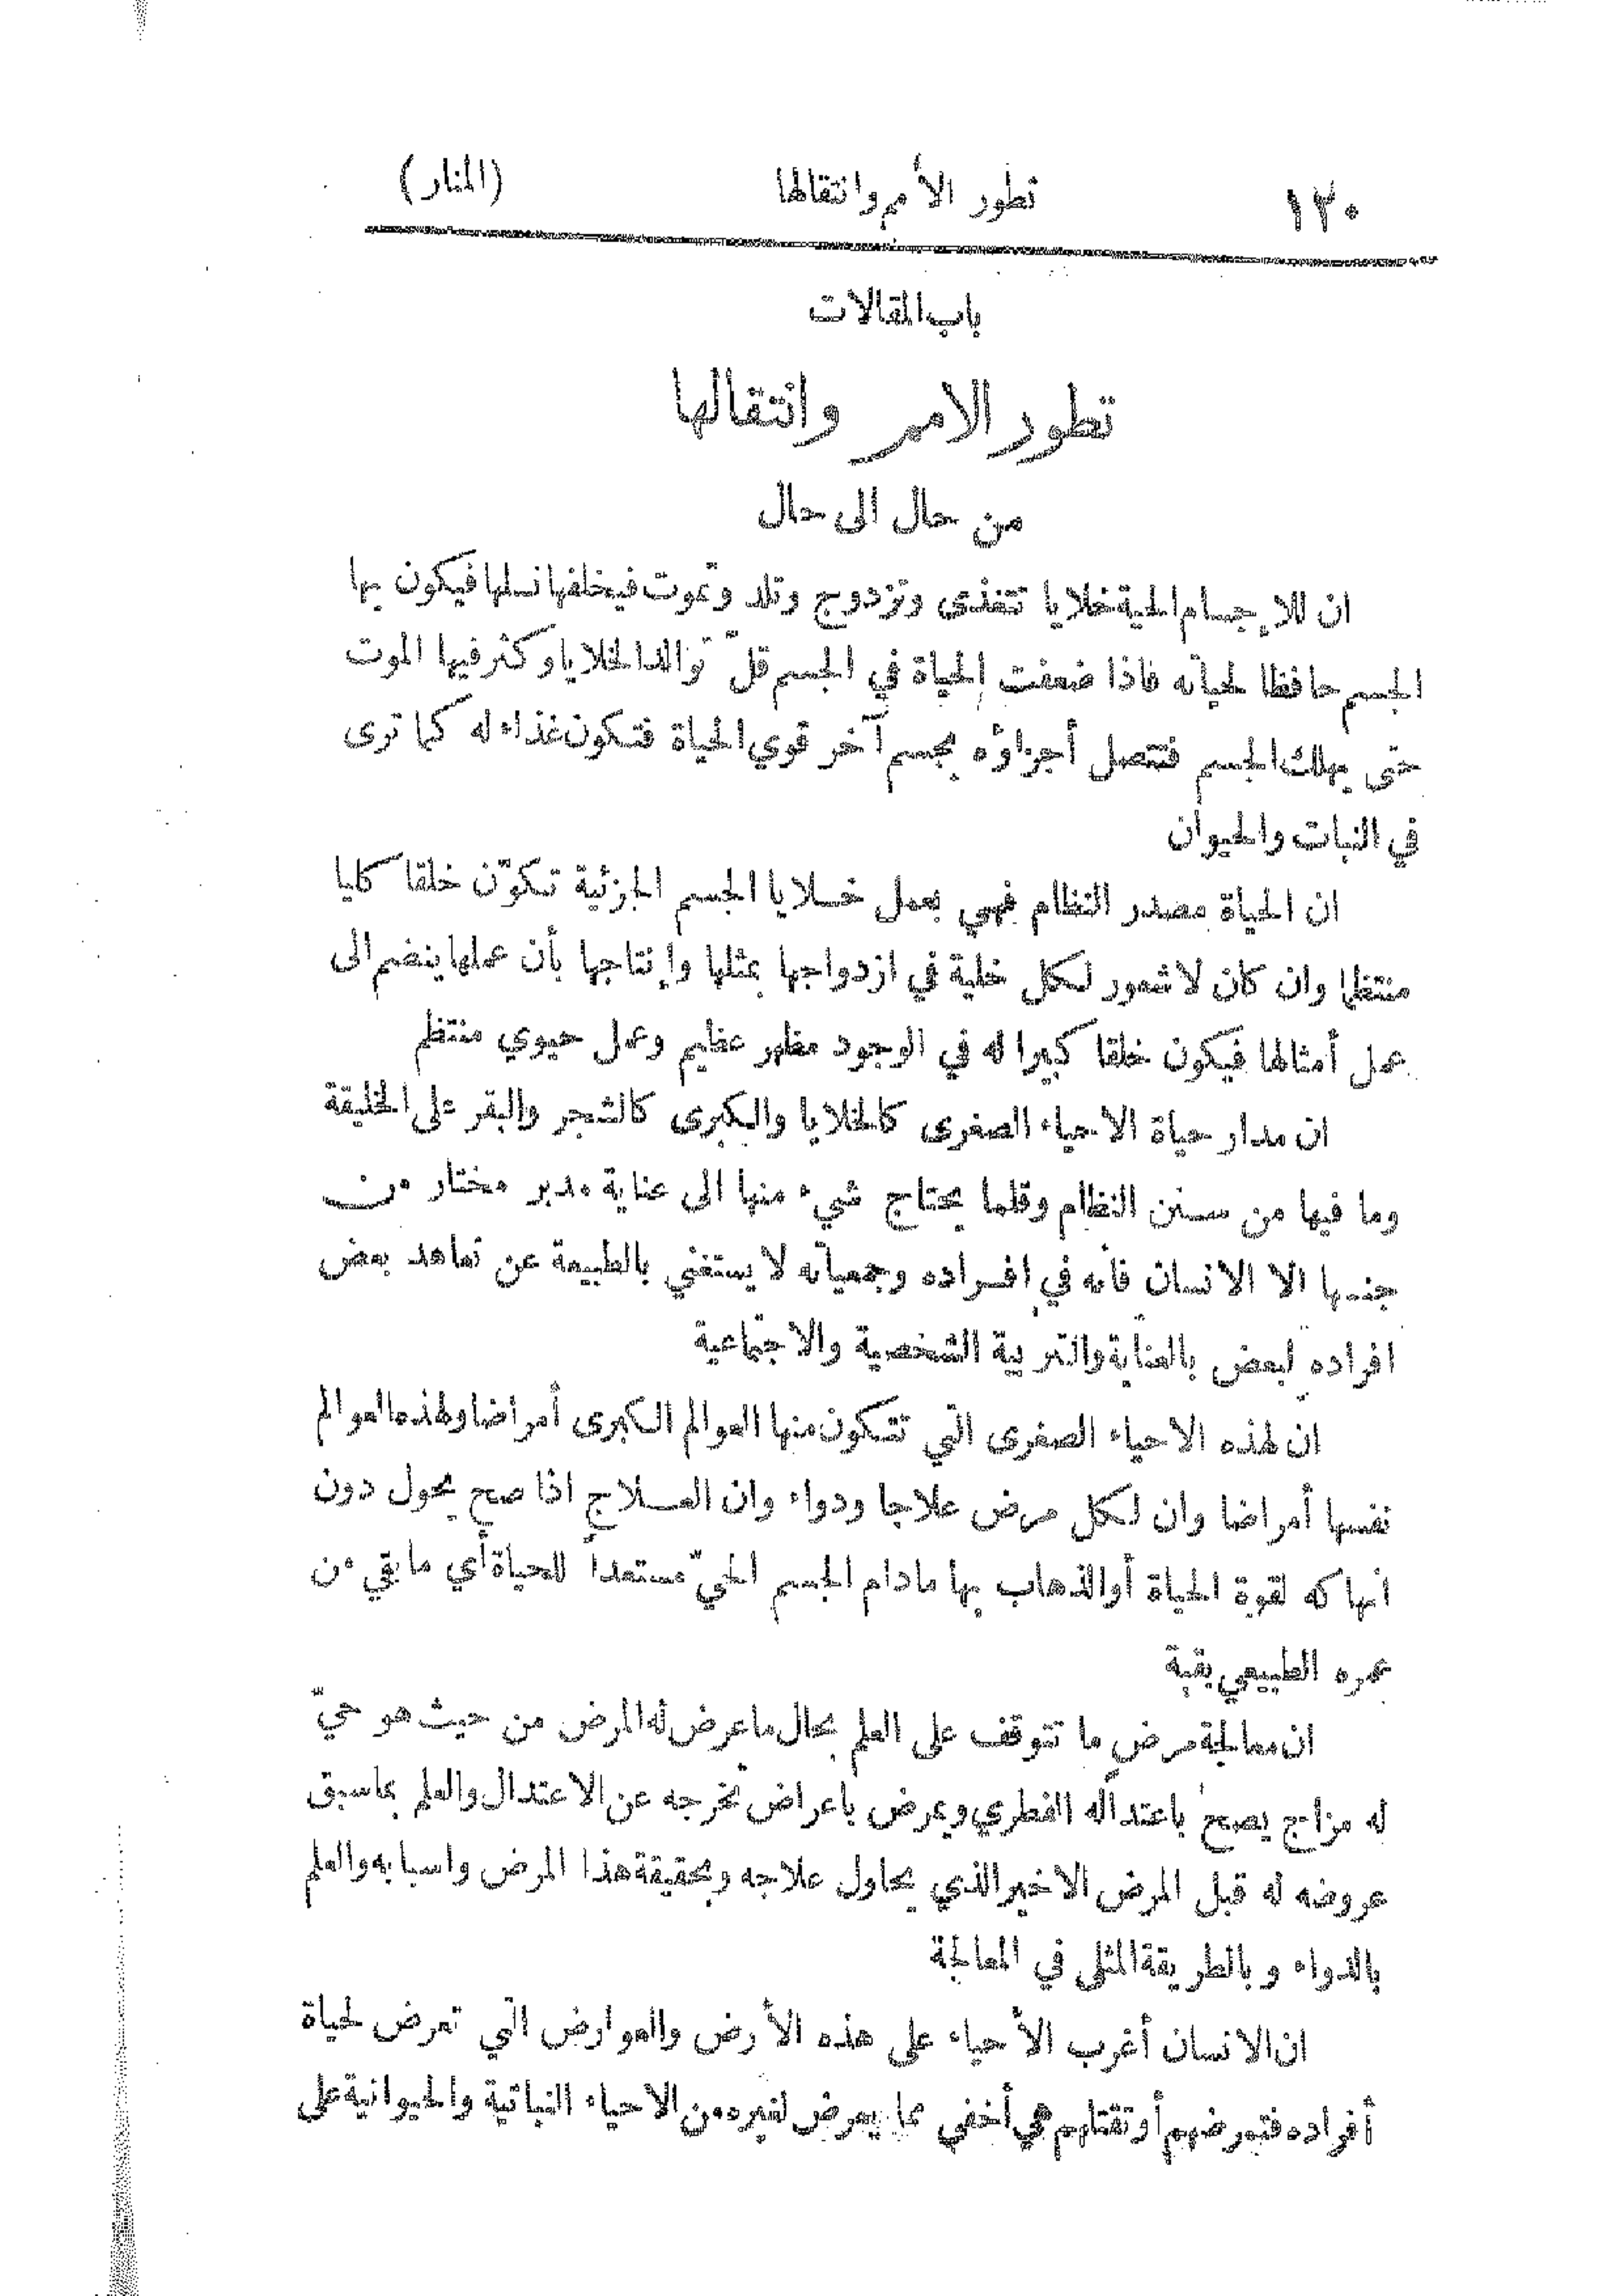 ١٣٠ تطور الأمم وانتقالها (المنار)
باب المقالات
تطور الامم وانتقالها
من حال الى حال
ان للاجسام الحية خلايا تتغذى وتزدوج وتلد وتموت فيخلفها نسلها فيكون بها
الجسم حافظا لحياته فاذا ضعفت الحياة في الجسم قلّ توالد الخلايا وكثر فيها الموت
حتى يهلك الجسم فتتصل أجزاؤه بجسم آخر قوي الحياة فتكون غذاء له كما ترى
في النبات والحيوان
ان الحياة مصدر النظام فهي بعمل خلايا الجسم الجزئية تكوّن خلقا كليا
منتظما وان كان لا شعور لكل خلية في ازدواجها بمثلها وإنتاجها بأن عملها ينضم الى
عمل أمثالها فيكون خلقا كبيرا له في الوجود مظهر عظيم وعمل حيوي منتظم
ان مدار حياة الاحياء الصغرى كالخلايا والكبرى كالشجر والبقر على الخليقة
وما فيها من سنن النظام وقلما يحتاج شيء منها الى عناية مدبر مختار من
جنسها الا الانسان فانه في افراده وجمعياته لا يستغني بالطبيعة عن تعاهد بعض
افراده لبعض بالعناية والتربية الشخصية والاجتماعية
ان لهذه الاحياء الصغرى التي تتكون منها العوالم الكبرى أمراضا ولهذه العوالم
نفسها أمراضا وان لكل مرض علاجا ودواء وان العلاج اذا صح يحول دون
انهاكه لقوة الحياة أو الذهاب بها مادام الجسم الحيّ مستعدا للحياة أي ما بقي من
عمره الطبيعي بقية
ان معالجة مرض ما تتوقف على العلم بحال ما عرض له المرض من حيث هو حيّ
له مزاج يصح باعتداله الفطري ويمرض باعراض تخرجه عن الاعتدال والعلم بما سبق
عروضه له قبل المرض الاخير الذي يحاول علاجه وبحقيقة هذا المرض واسبابه والعلم
بالدواء وبالطريقة المثلى في المعالجة
ان الانسان أغرب الأحياء على هذه الأرض والعوارض التي تعرض لحياة
أفراده فتمرضهم أو تقتلهم هي أخفى مما يعرض لغيره من الاحياء النباتية والحيوانية على